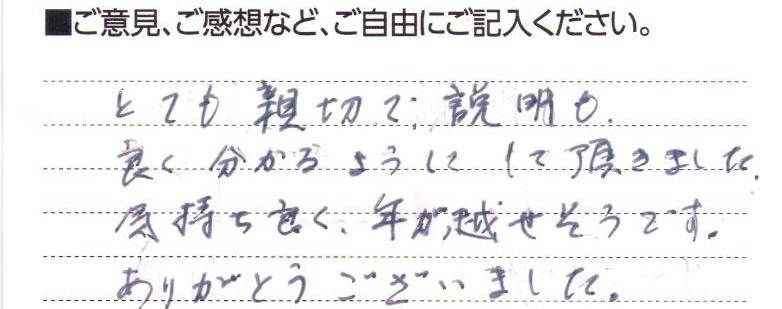 ■ご意見、ご感想など、ご自由にご記入ください。
とても親切で、説明も、
良く分かるようにして頂きました。
気持ち良く、年が越せそうです。
ありがとうございました。